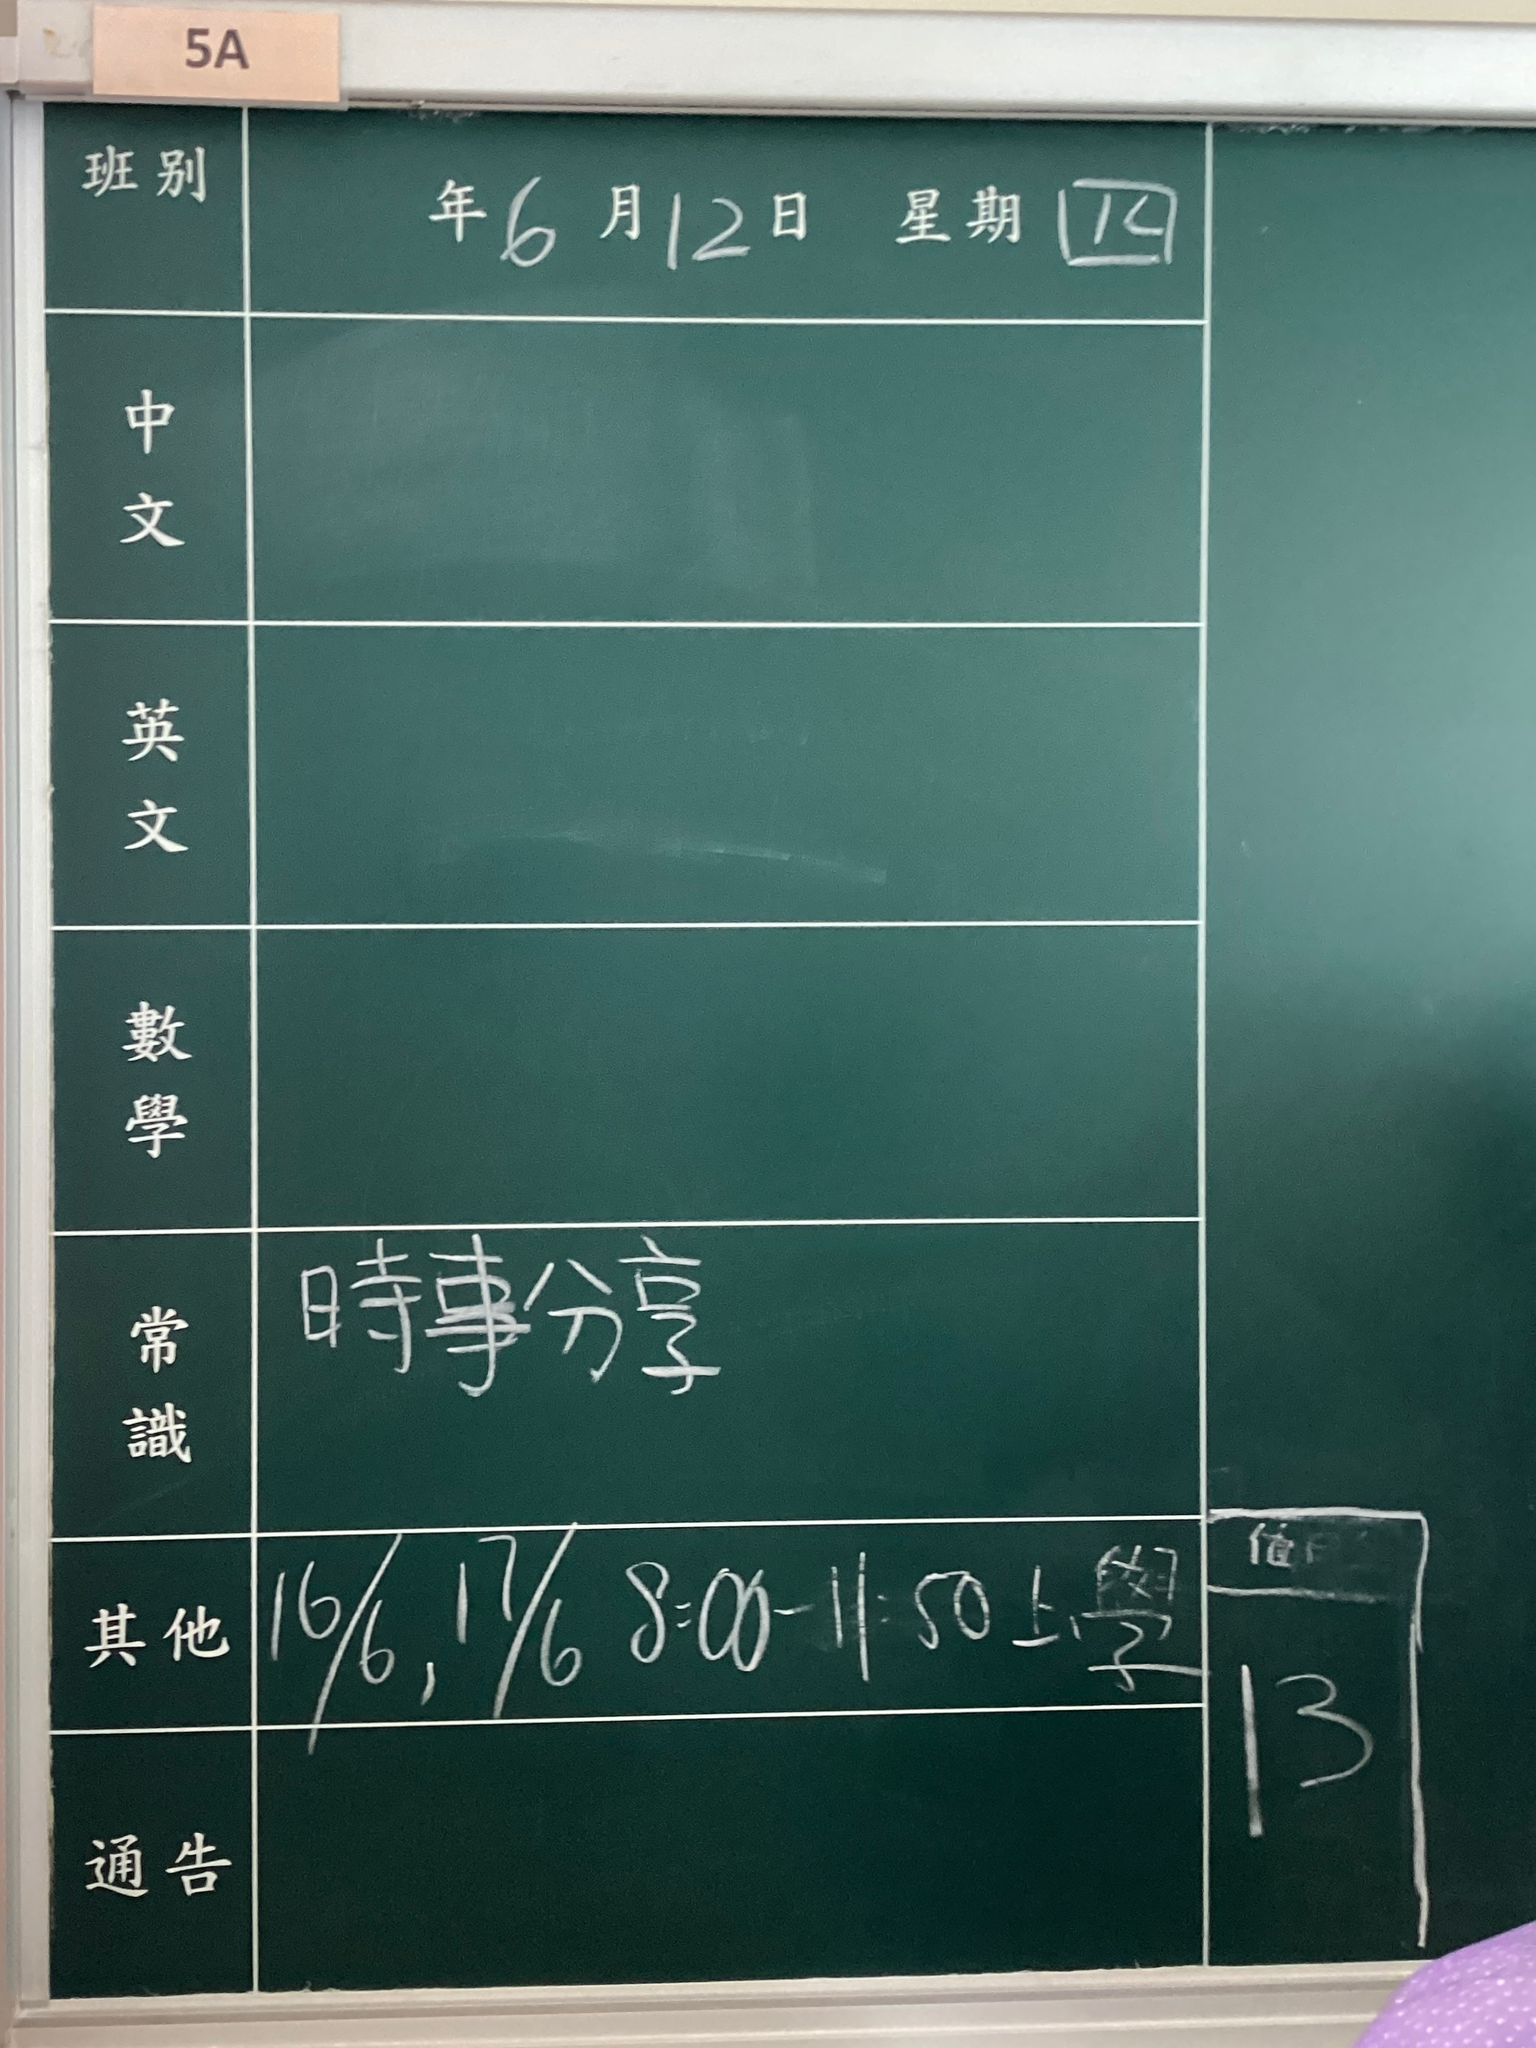 5A
班別
年6月12日 星期四
中文
英文
數學
常識 時事分享
其他 16/6, 17/6 8:00-11:50上學
值日生
13
通告